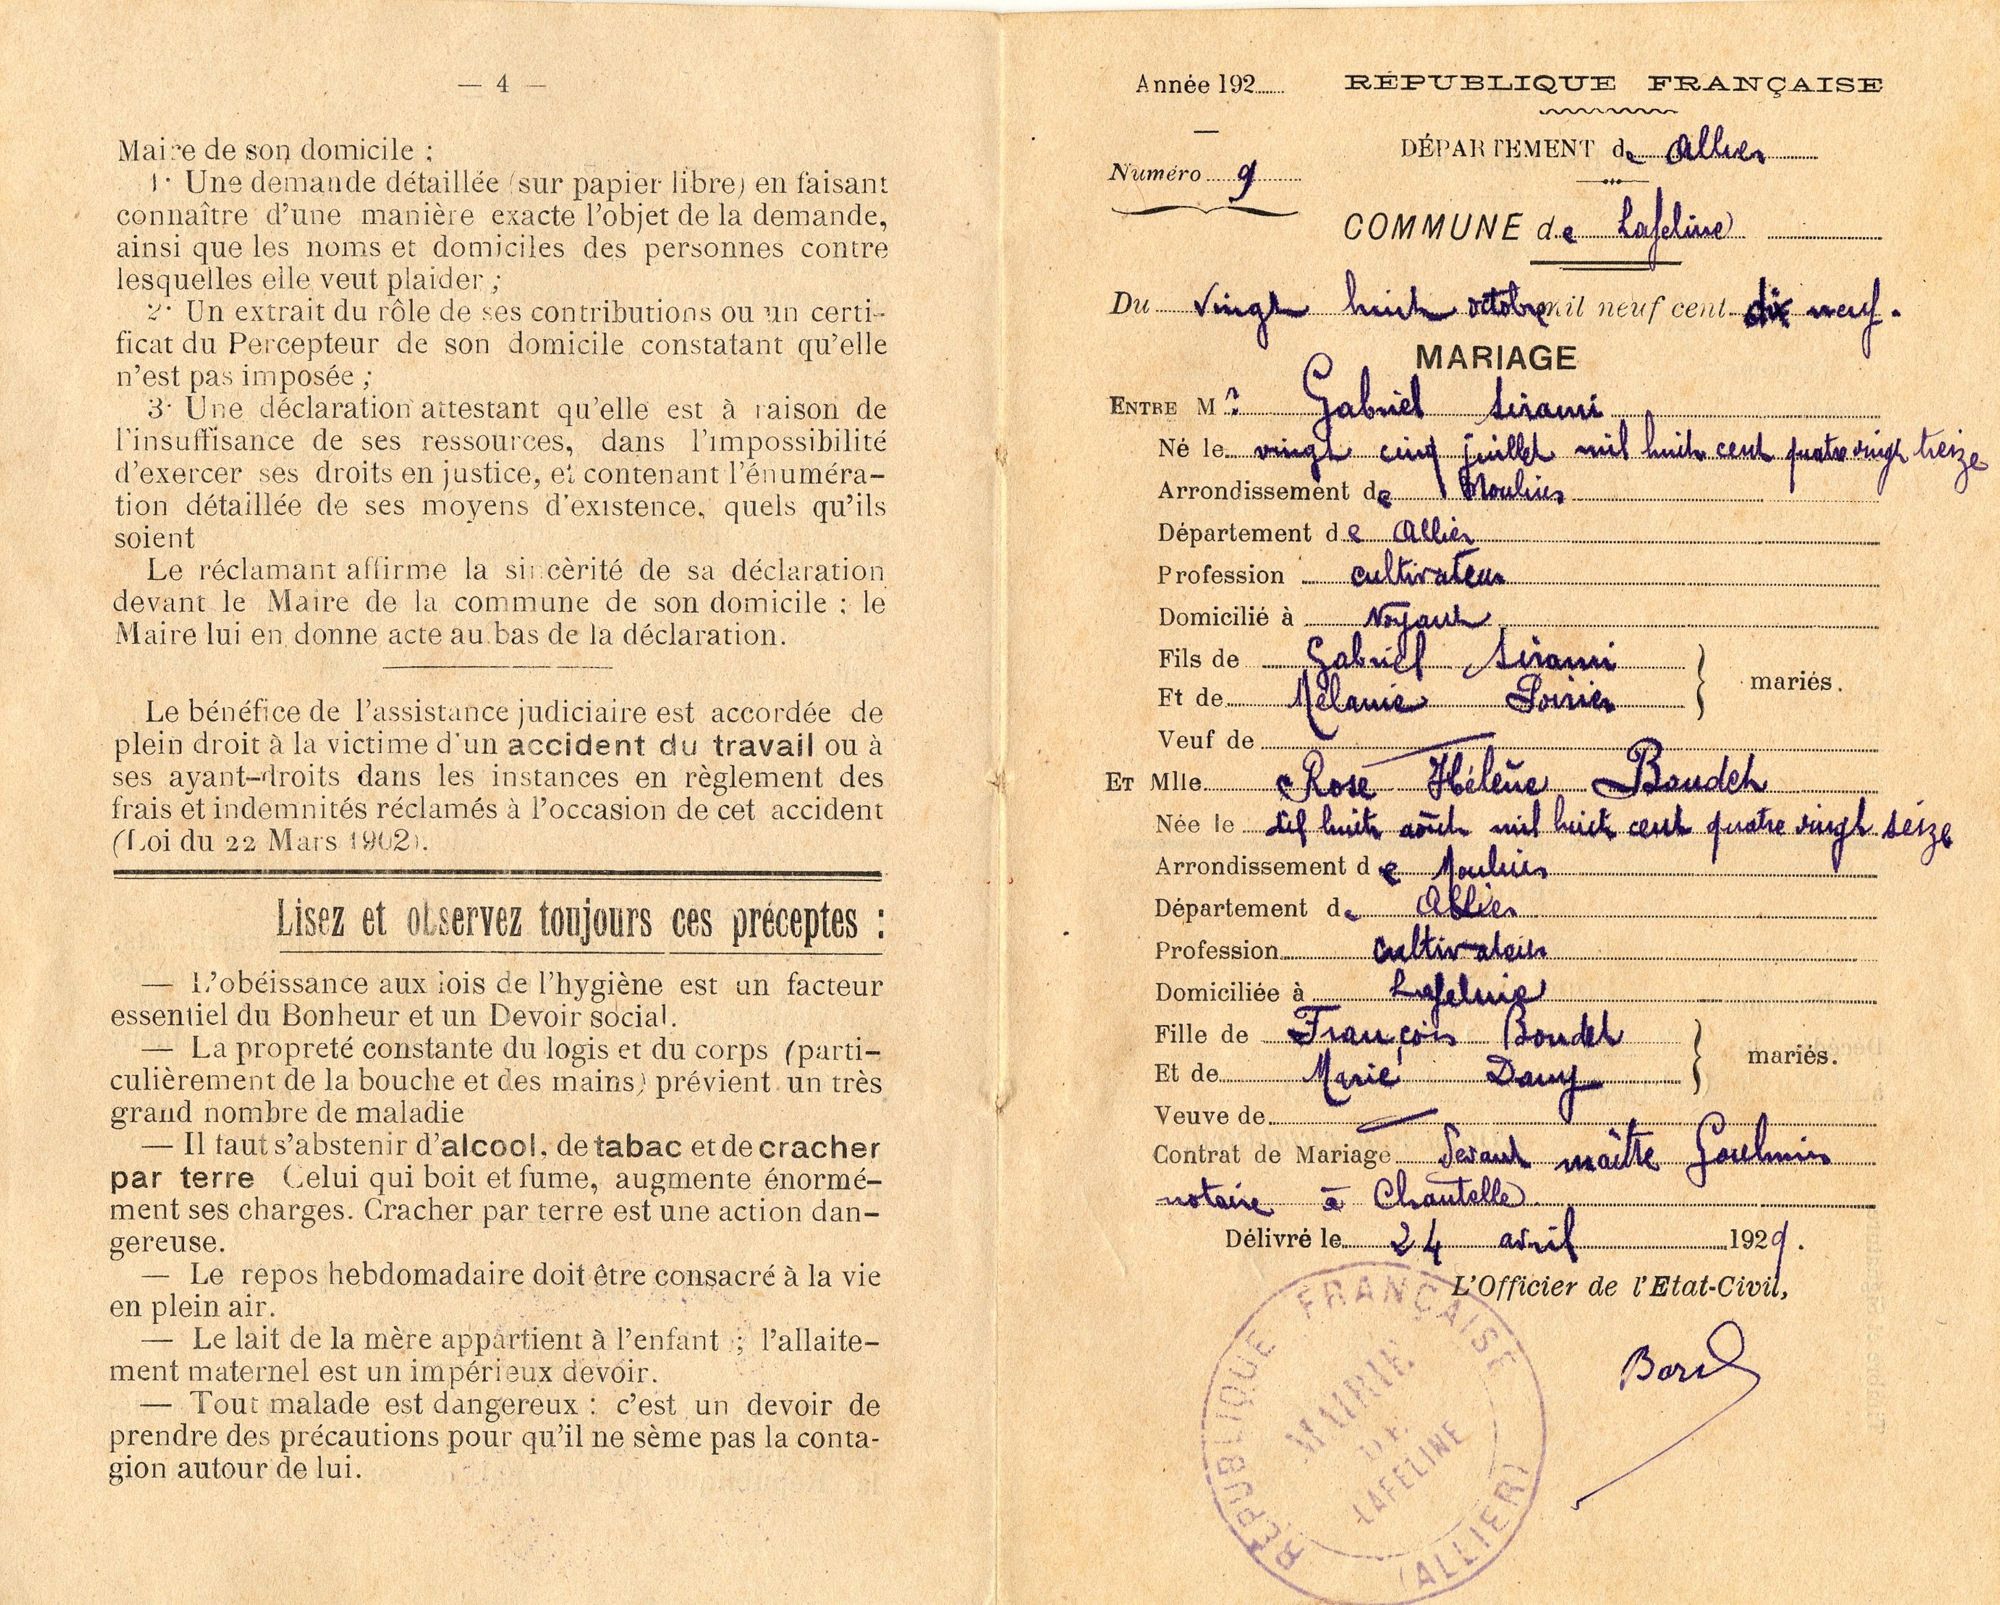 — 4 —
Maire de son domicile ;
1· Une demande détaillée (sur papier libre) en faisant
connaître d'une manière exacte l'objet de la demande,
ainsi que les noms et domiciles des personnes contre
lesquelles elle veut plaider ;
2· Un extrait du rôle de ses contributions ou un certi-
ficat du Percepteur de son domicile constatant qu'elle
n'est pas imposée ;
3· Une déclaration attestant qu'elle est à raison de
l'insuffisance de ses ressources, dans l'impossibilité
d'exercer ses droits en justice, et contenant l'énuméra-
tion détaillée de ses moyens d'existence, quels qu'ils
soient
Le réclamant affirme la sincérité de sa déclaration
devant le Maire de la commune de son domicile ; le
Maire lui en donne acte au bas de la déclaration.
Le bénéfice de l'assistance judiciaire est accordée de
plein droit à la victime d'un accident du travail ou à
ses ayant-droits dans les instances en règlement des
frais et indemnités réclamés à l'occasion de cet accident
(Loi du 22 Mars 1902).
Lisez et observez toujours ces préceptes :
— L'obéissance aux lois de l'hygiène est un facteur
essentiel du Bonheur et un Devoir social.
— La propreté constante du logis et du corps (parti-
culièrement de la bouche et des mains) prévient un très
grand nombre de maladie
— Il faut s'abstenir d'alcool, de tabac et de cracher
par terre Celui qui boit et fume, augmente énormé-
ment ses charges. Cracher par terre est une action dan-
gereuse.
— Le repos hebdomadaire doit être consacré à la vie
en plein air.
— Le lait de la mère appartient à l'enfant ; l'allaite-
ment maternel est un impérieux devoir.
— Tout malade est dangereux : c'est un devoir de
prendre des précautions pour qu'il ne sème pas la conta-
gion autour de lui.
Année 192
RÉPUBLIQUE FRANÇAISE
DÉPARTEMENT de Allier
Numéro 9
COMMUNE de Lafeline
Du vingt huit octobre mil neuf cent dix neuf.
MARIAGE
ENTRE Mr Gabriel Sirami
Né le vingt cinq juillet mil huit cent quatre vingt treize
Arrondissement de Moulins
Département de Allier
Profession cultivateur
Domicilié à Noyant
Fils de Gabriel Sirami
Et de Mélanie Poirier
mariés.
Veuf de
ET Mlle Rose Hélène Boudet
Née le dix huit août mil huit cent quatre vingt seize
Arrondissement de Moulins
Département de Allier
Profession cultivateur
Domiciliée à Lafeline
Fille de François Boudet
Et de Marie Dauy
mariés.
Veuve de
Contrat de Mariage Devant maître
notaire à Chantelle
Délivré le 24 avril 1929.
L'Officier de l'Etat-Civil,
RÉPUBLIQUE FRANÇAISE
MAIRIE
DE
LAFELINE
(ALLIER)